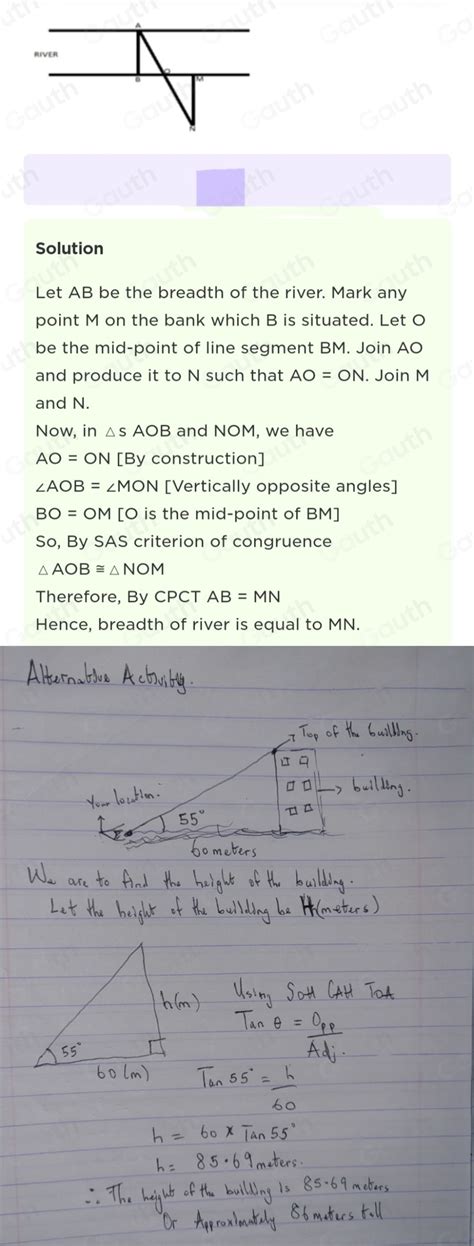 A
RIVER
B
O
M
N
Solution
Let AB be the breadth of the river. Mark any
point M on the bank which B is situated. Let O
be the mid-point of line segment BM. Join AO
and produce it to N such that AO = ON. Join M
and N.
Now, in △s AOB and NOM, we have
AO = ON [By construction]
∠AOB = ∠MON [Vertically opposite angles]
BO = OM [O is the mid-point of BM]
So, By SAS criterion of congruence
△AOB ≅ △NOM
Therefore, By CPCT AB = MN
Hence, breadth of river is equal to MN.
Alternative Activity.
Top of the building.
building.
Your location.
55°
60 meters
We are to find the height of the building.
Let the height of the building be H(meters)
h(m)
55°
60 (m)
Using SOH CAH TOA
Tan θ = Opp
Adj.
Tan 55° = h
60
h = 60 × Tan 55°
h = 85.69 meters.
∴ The height of the building is 85.69 meters
Or Approximately 86 meters tall
Gauth